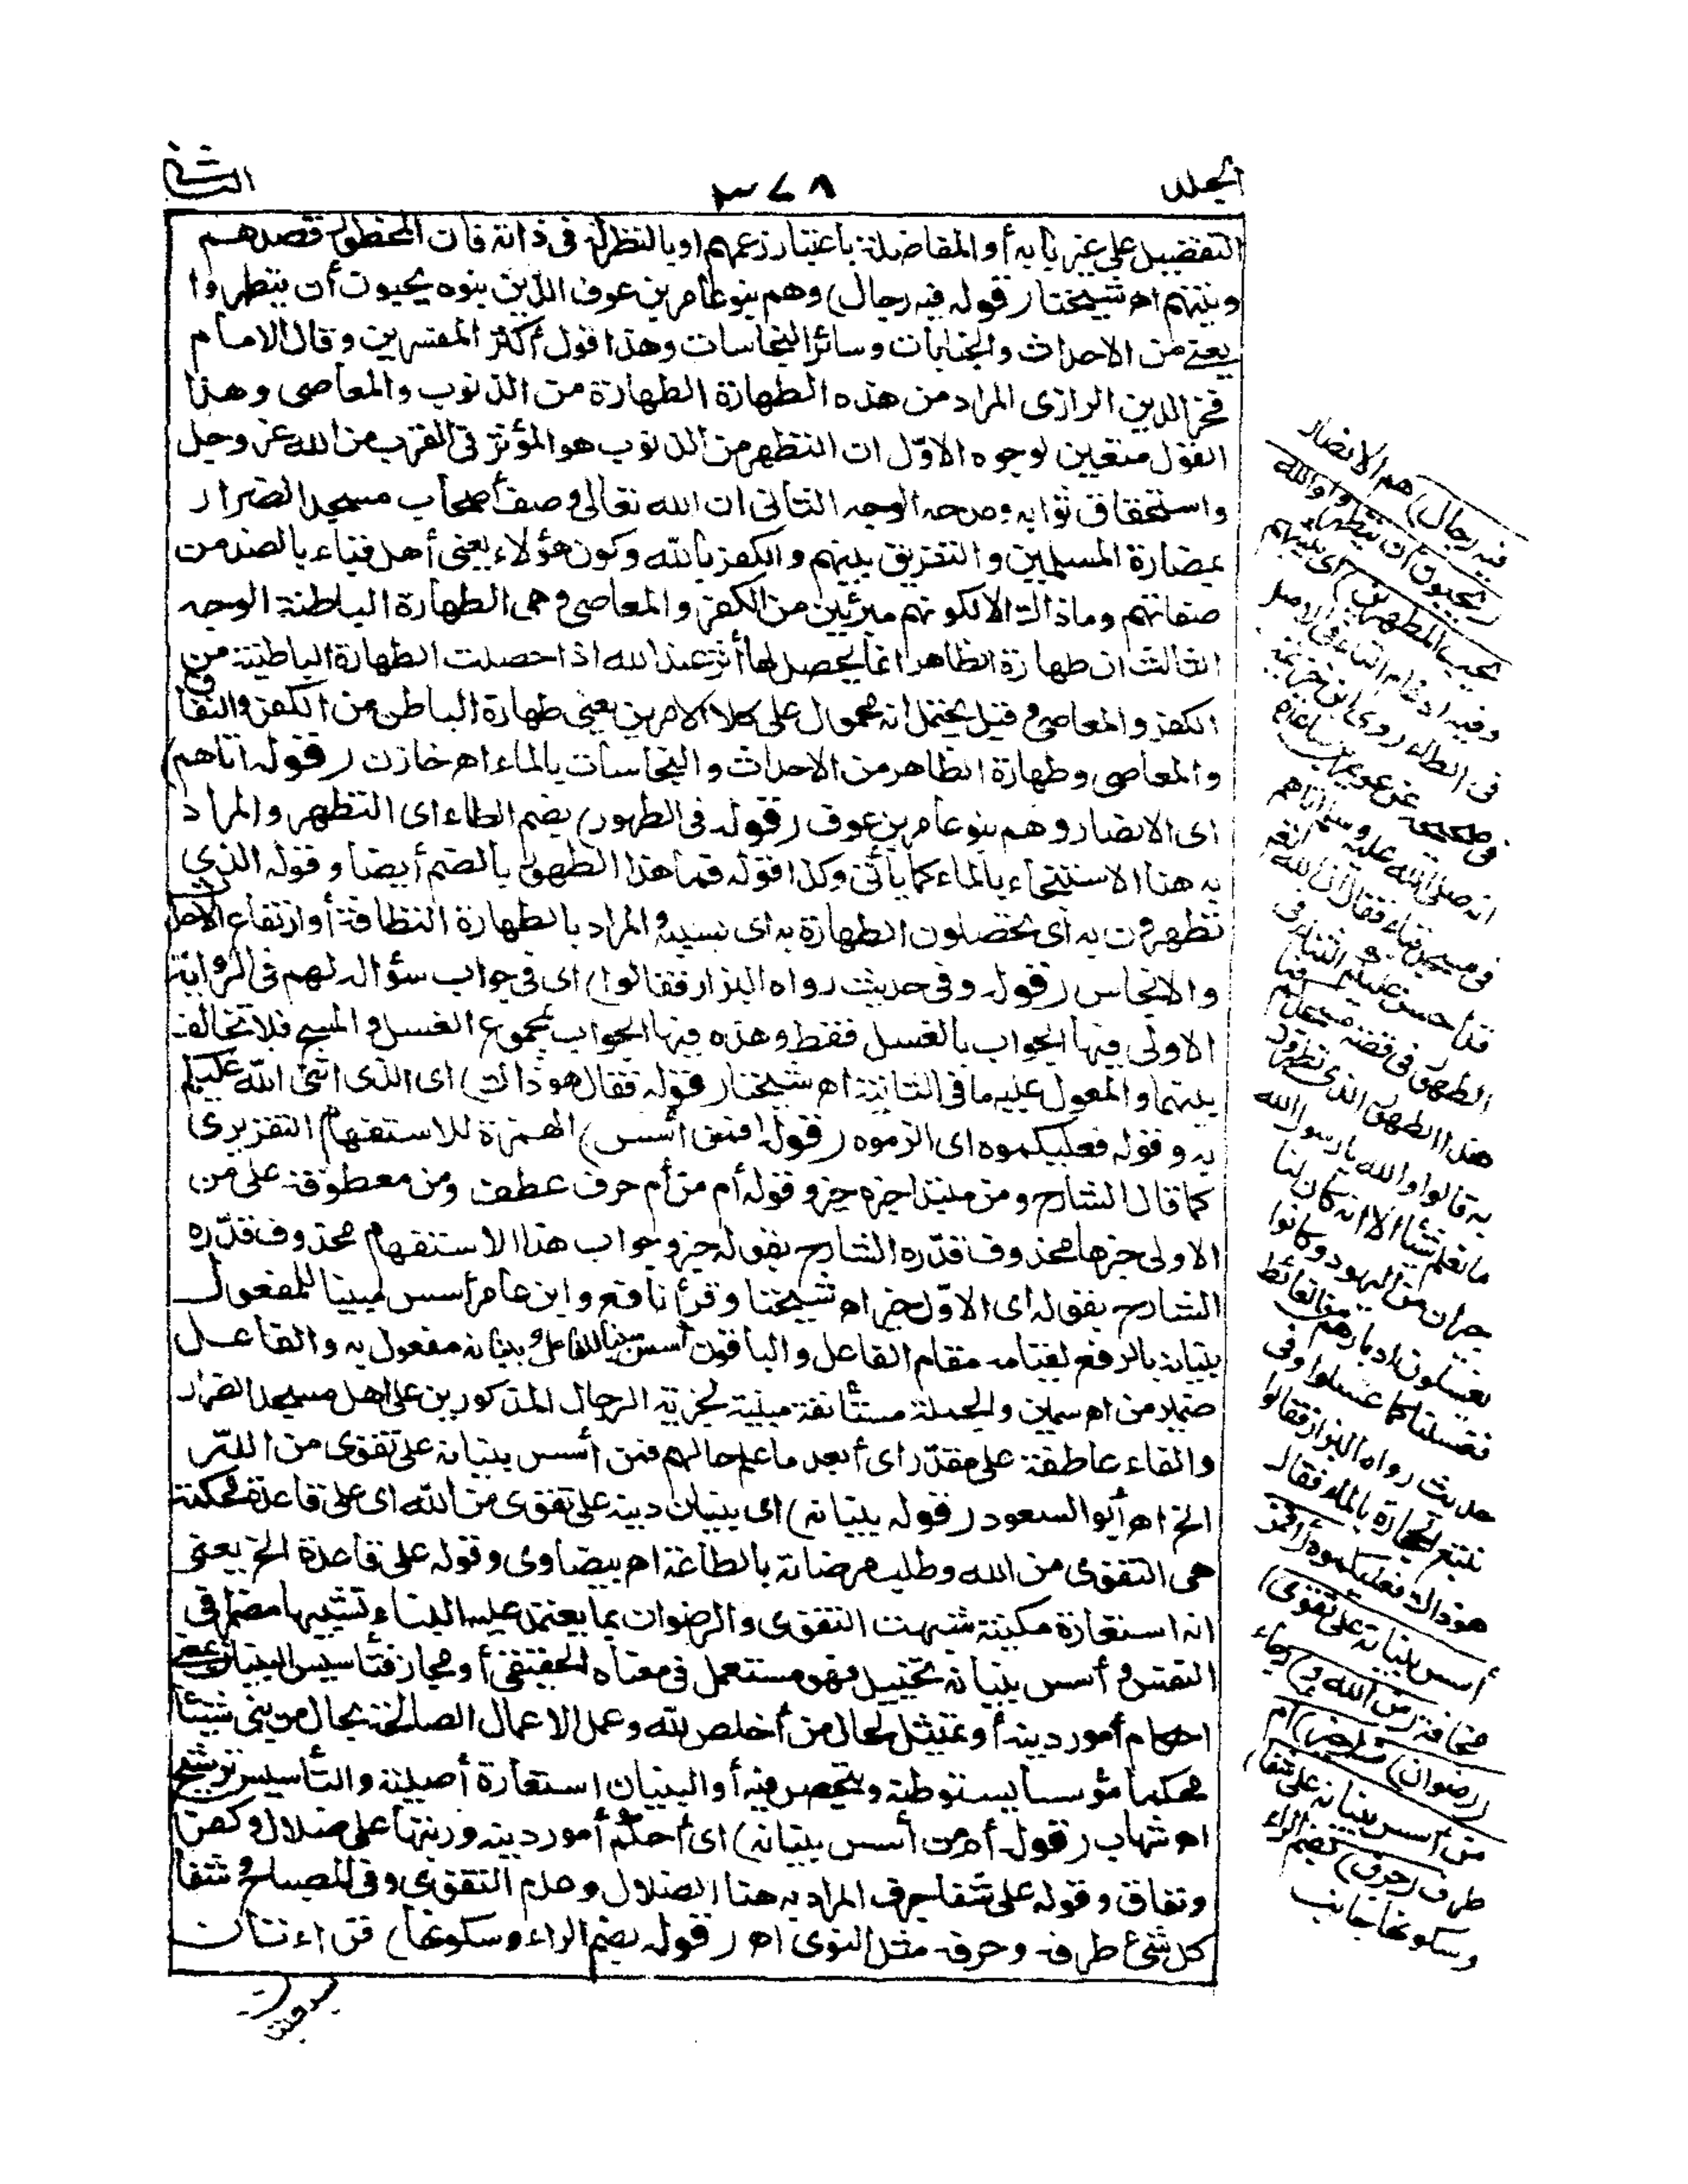 الجلد
٣٧٨
الثانى
التفضيل على غير بابه أو المفاضلة باعتبار زعمهم او بالنظر له فى ذاته فان المحظور قصدهم
ونيتهم اه شيخنا (قوله فيه رجال) وهم بنو عامر بن عوف الذين بنوه يحبون أن يتطهروا
يعنى من الاحداث والجنابات وسائر النجاسات وهذا قول أكثر المفسرين وقال الامام
فخر الدين الرازى المراد من هذه الطهارة الطهارة من الذنوب والمعاصى وهذا
القول متعين لوجوه الاوّل ان التطهر من الذنوب هو المؤثر فى القرب من الله عز وجل
واستحقاق ثوابه ومدحه الوجه الثانى ان الله تعالى وصف أصحاب مسجد الضرار
بمضارة المسلمين والتفريق بينهم والكفر بالله وكون هؤلاء يعنى أهل قباء بالضد من
صفاتهم وما ذاك الا لكونهم مبرئين من الكفر والمعاصى وهى الطهارة الباطنة الوجه
الثالث ان طهارة الظاهر انما يحصل لها أثر عند الله اذا حصلت الطهارة الباطنية من
الكفر والمعاصى وقيل يحتمل انه محمول على كلا الامرين يعنى طهارة الباطن من الكفر والنفاق
والمعاصى وطهارة الظاهر من الاحداث والنجاسات بالماء اه خازن (قوله اتاهم)
اى الانصار وهم بنو عامر بن عوف (قوله فى الطهور) بضم الطاء اى التطهر والمراد
به هنا الاستنجاء بالماء كما يأتى وكذا قوله فما هذا الطهور بالضم أيضا وقوله الذى
تطهرون به أى تحصلون الطهارة به اى بسببه والمراد بالطهارة النظافة أو ارتفاع الاحداث
والانجاس (قوله وفى حديث رواه البزار فقالوا) اى فى جواب سؤاله لهم فى الرواية
الاولى فيها الجواب بالغسل فقط وهذه فيها الجواب بمجموع الغسل والمسح فلا تخالف
بينهما والمعول عليه ما فى الثانية اه شيخنا (قوله فقال هو ذاك) اى الذى اثنى الله عليكم
به وقوله فعليكموه اى الزموه (قوله افمن أسس) الهمزة للاستفهام التقريرى
كما قال الشارح ومن مبتدا خبره خير وقوله أم من أم حرف عطف ومن معطوفة على من
الاولى خبرها محذوف قدّره الشارح بقوله خير وجواب هذا الاستفهام محذوف قدّره
الشارح بقوله اى الاوّل خير اه شيخنا وقرأ نافع وابن عامر أسس مبينا للمفعول
بنيانه بالرفع لقيامه مقام الفاعل والباقون أسس مبينا للفاعل وبنيانه مفعول به والفاعل
ضمير من اه سمين والجملة مستأنفة مبينة لخيرية الرجال المذكورين على اهل مسجد الضرار
والفاء عاطفة على مقدّر اى أبعد ما علم حالهم فمن أسس بنيانه على تقوى من اللّه
الخ اه أبو السعود (قوله بنيانه) اى بنيان دينه على تقوى من الله اى على قاعدة محكمة
هى التقوى من الله وطلب مرضاته بالطاعة اه بيضاوى وقوله على قاعدة الخ يعنى
انه استعارة مكنية شبهت التقوى والرضوان بما يعتمد عليه البناء تشبيها مضمرا فى
النفس وأسس بنيانه تخييل فهو مستعمل فى معناه الحقيقى أو مجاز فتأسيس البنيان بمعنى
احكام أمور دينه أو تمثيل لحال من أخلص لله وعمل الاعمال الصالحة بحال من بنى شيئا
محكما مؤسسا يستوطنه ويتحصن فيه أو البنيان استعارة أصلية والتأسيس ترشيح
اه شهاب (قوله أم من أسس بنيانه) اى أحكم أمور دينه ورتبها على ضلال وكفر
ونفاق وقوله على شفا جرف المراد به هنا الضلال وعدم التقوى وفى المصباح وشفا
كل شئ طرفه وحرفه مثل النوى اه (قوله بضم الراء وسكونها) قراءتان
فيه رجال) هم الانصار
(يحبون أن يتطهروا والله
يحب المطهرين) اى يثيبهم
وفيه ادغام التاء فى الاصل
فى الطاء روى ابن خزيمة
فى صحيحه عن عويم بن ساعدة
انه صلى الله عليه وسلم اتاهم
فى مسجد قباء فقال ان الله
قد احسن عليكم الثناء فى
الطهور فى قصة مسجدكم فما
هذا الطهور الذى تطهرون
به قالوا والله يارسول الله
ما نعلم شيئا الا انه كان لنا
جيران من اليهود وكانوا
يغسلون ادبارهم من الغائط
فغسلنا كما غسلوا وفى
حديث رواه البزار فقالوا
نتبع الحجارة بالماء فقال
هو ذاك فعليكموه (أفمن
أسس بنيانه على تقوى)
مخافة (من الله و) رجاء
(رضوان) منه (خير) ام
من أسس بنيانه على شفا)
طرف (جرف) بضم الراء
وسكونها جانب